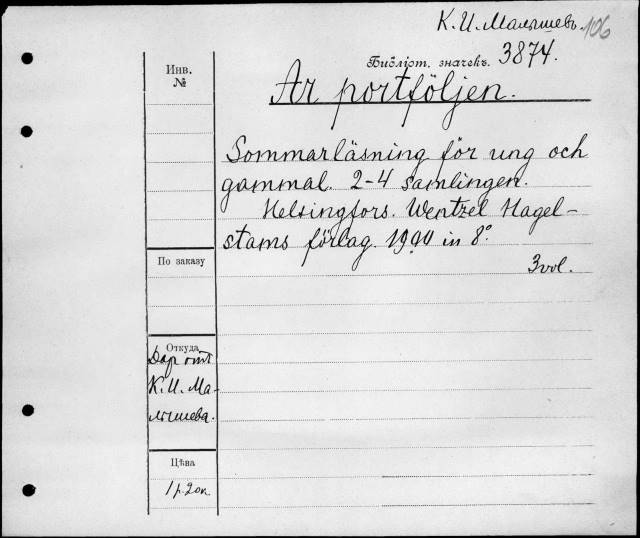 К. И. Малышевъ. 106
Библіот. значекъ. 3874.
Инв.
№
Ar portföljen.
Sommarläsning för ung och
gammal. 2-4 samlingen.
Helsingfors. Wentzel Hagel-
stams förlag. 1900 in 8°
3 vol.
По заказу
Откуда
Дар отъ
К. И. Ма-
лышева.
Цѣна
1 р. 20 к.